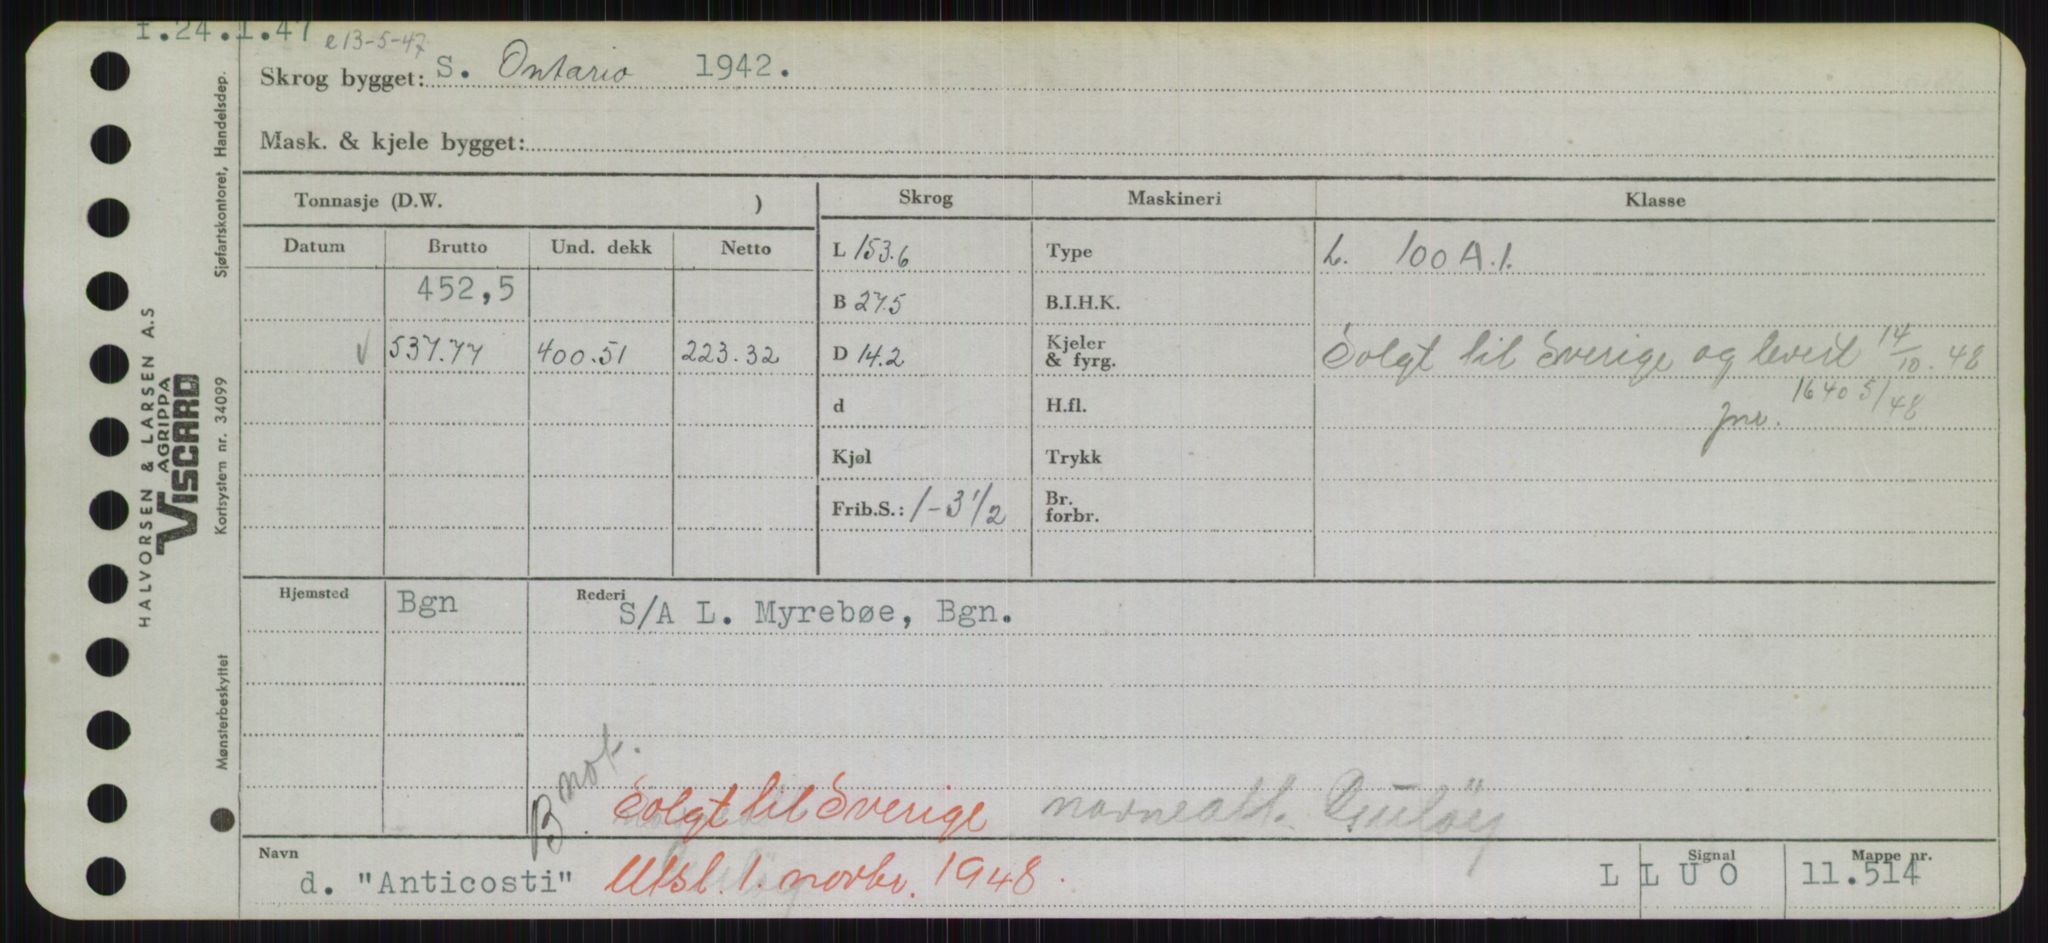 I.24.1.47 e 13-5-47
Skrog bygget: S. Ontario 1942.
Mask. & kjele bygget:
Tonnasje (D.W. ) Skrog Maskineri Klasse
Datum Brutto Und. dekk Netto L 153.6 Type L. 100 A.1.
452,5 B 27.5 B.I.H.K.
√ 537.77 400.51 223.32 D 14.2 Kjeler & fyrg. Solgt til Sverige og levert 14/10.48
d H.fl. jnr. 16405/48
Kjøl Trykk
Frib.S.: 1-3 1/2 Br. forbr.
Hjemsted Bgn Rederi S/A L. Myrebøe, Bgn.
B. not. Solgt til Sverige
Navn d. "Anticosti" Utsl. 1. novbr. 1948. Signal L L U O Mappe nr. 11.514
HALVORSEN & LARSEN A.S
AGRIPPA
VISCARD
Mønsterbeskyttet Kortsystem nr. 34099 Sjøfartskontoret, Handelsdep.